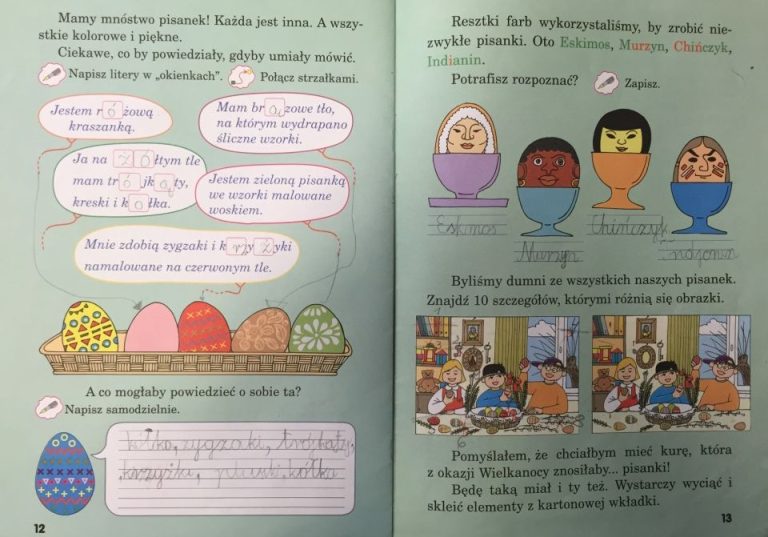 Mamy mnóstwo pisanek! Każda jest inna. A wszy-
stkie kolorowe i piękne.
Ciekawe, co by powiedziały, gdyby umiały mówić.
Napisz litery w „okienkach”. Połącz strzałkami.
Jestem różową
kraszanką.
Mam brązowe tło,
na którym wydrapano
śliczne wzorki.
Ja na żółtym tle
mam trójkąty,
kreski i kołka.
Jestem zieloną pisanką
we wzorki malowane
woskiem.
Mnie zdobią zygzaki i krzyżyki
namalowane na czerwonym tle.
A co mogłaby powiedzieć o sobie ta?
Napisz samodzielnie.
kułko, zygzaki, trójkąty,
krzyżyki, pluski, kółka
12
Resztki farb wykorzystaliśmy, by zrobić nie-
zwykłe pisanki. Oto Eskimos, Murzyn, Chińczyk,
Indianin.
Potrafisz rozpoznać? Zapisz.
Eskmos
Murzyn
Chińczyk
Byliśmy dumni ze wszystkich naszych pisanek.
Znajdź 10 szczegółów, którymi różnią się obrazki.
Pomyślałem, że chciałbym mieć kurę, która
z okazji Wielkanocy znosiłaby... pisanki!
Będę taką miał i ty też. Wystarczy wyciąć i
skleić elementy z kartonowej wkładki.
13